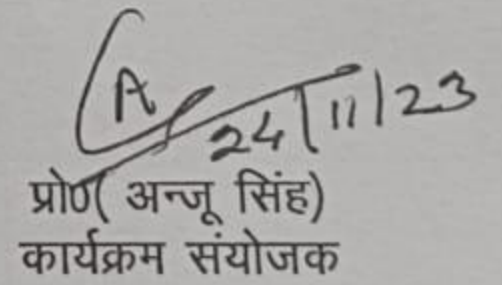 24/11/23
प्रो0( अन्जू सिंह)
कार्यक्रम संयोजक